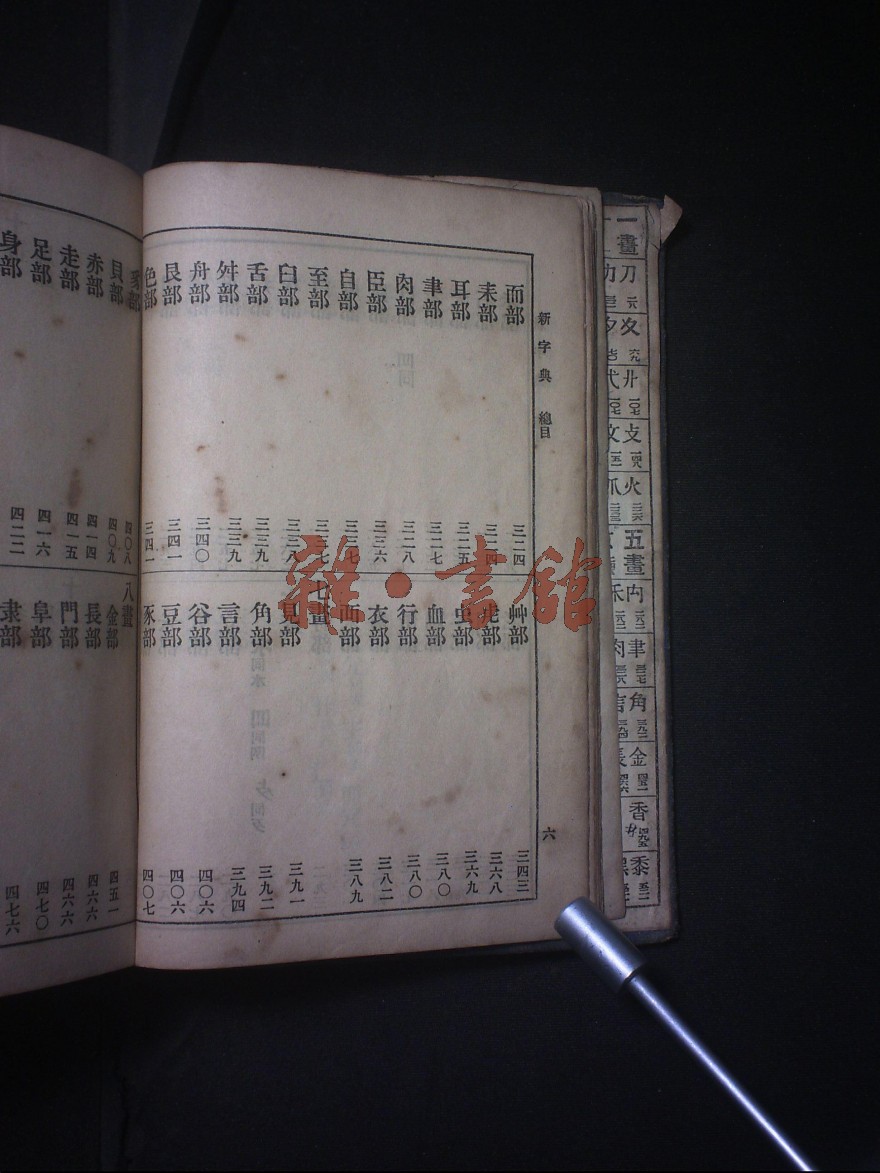 新字典 總目
而部 三二四
耒部 三二四
耳部 三二五
聿部 三二七
肉部 三二八
臣部 三三六
自部 三三七
至部 三三七
臼部 三三八
舌部 三三九
舛部 三三九
舟部 三四〇
艮部 三四一
色部 三四一
艸部 三四三
虍部 三六八
虫部 三六九
血部 三八〇
行部 三八〇
衣部 三八二
襾部 三八九
七畫
見部 三九一
角部 三九二
言部 三九四
谷部 四〇六
豆部 四〇六
豕部 四〇七
六
豸部 四〇八
貝部 四〇九
赤部 四一四
走部 四一五
足部 四一六
身部 四二二
八畫
金部 四五一
長部 四六六
門部 四六六
阜部 四七〇
隶部 四七六
雜·書館
一畫
刀
夂
廾
攴
火
五畫
禸
聿
角
金
香
黍